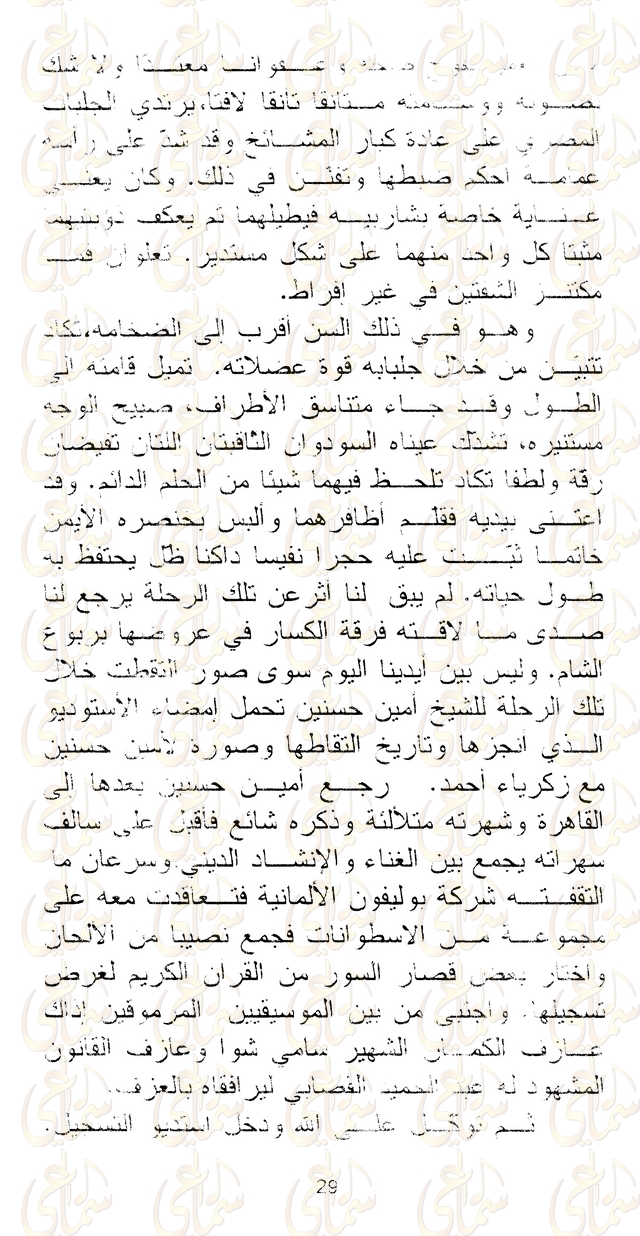 صحته و عنفوانا معتدّا ولا شك
بصوته ووسامته متأنقا تانقا لافتا،يرتدي الجلباب
المصري على عادة كبار المشائخ وقد شدّ على رأسه
عمامة احكم ضبطها وتفنّن في ذلك. وكان يعتني
عناية خاصة بشاربيه فيطيلهما ثم يعكف ذويبتيهما
مثبتا كل واحد منهما على شكل مستدير. تعلوان فما
مكتنز الشفتين في غير إفراط.
وهو في ذلك السن أقرب إلى الضخامه،تكاد
تتبيّن من خلال جلبابه قوة عضلاته. تميل قامته الي
الطول وقد جاء متناسق الأطراف، صبيح الوجه
مستنيره، تشدّك عيناه السودوان الثاقبتان اللتان تفيضان
رقة ولطفا تكاد تلحظ فيهما شيئا من الحلم الدائم. وقد
اعتنى بيديه فقلّم أظافرهما وألبس بخنصره الأيمن
خاتما ثبّت عليه حجرا نفيسا داكنا ظلّ يحتفظ به
طول حياته. لم يبق لنا أثرعن تلك الرحلة يرجع لنا
صدى ما لاقته فرقة الكسار في عروضها بربوع
الشام. وليس بين أيدينا اليوم سوى صور التقطت خلال
تلك الرحلة للشيخ أمين حسنين تحمل إمضاء الأستوديو
الذي انجزها وتاريخ التقاطها وصورة لأمين حسنين
مع زكرياء أحمد. رجع أمين حسنين بعدها إلى
القاهرة وشهرته متلألئة وذكره شائع فأقبل على سالف
سهراته يجمع بين الغناء والإنشاد الديني.وسرعان ما
التقفته شركة بوليفون الألمانية فتعاقدت معه على
مجموعة من الاسطوانات فجمع نصيبا من الألحان
واختار بعض قصار السور من القران الكريم لغرض
تسجيلها. واجتبى من بين الموسيقيين المرموقين إذاك
عازف الكمان الشهير سامي شوا وعازف القانون
المشهود له عبد الحميد القضابي ليرافقاه بالعزف.
ثم توكّل على الله ودخل استديو التسجيل.
29